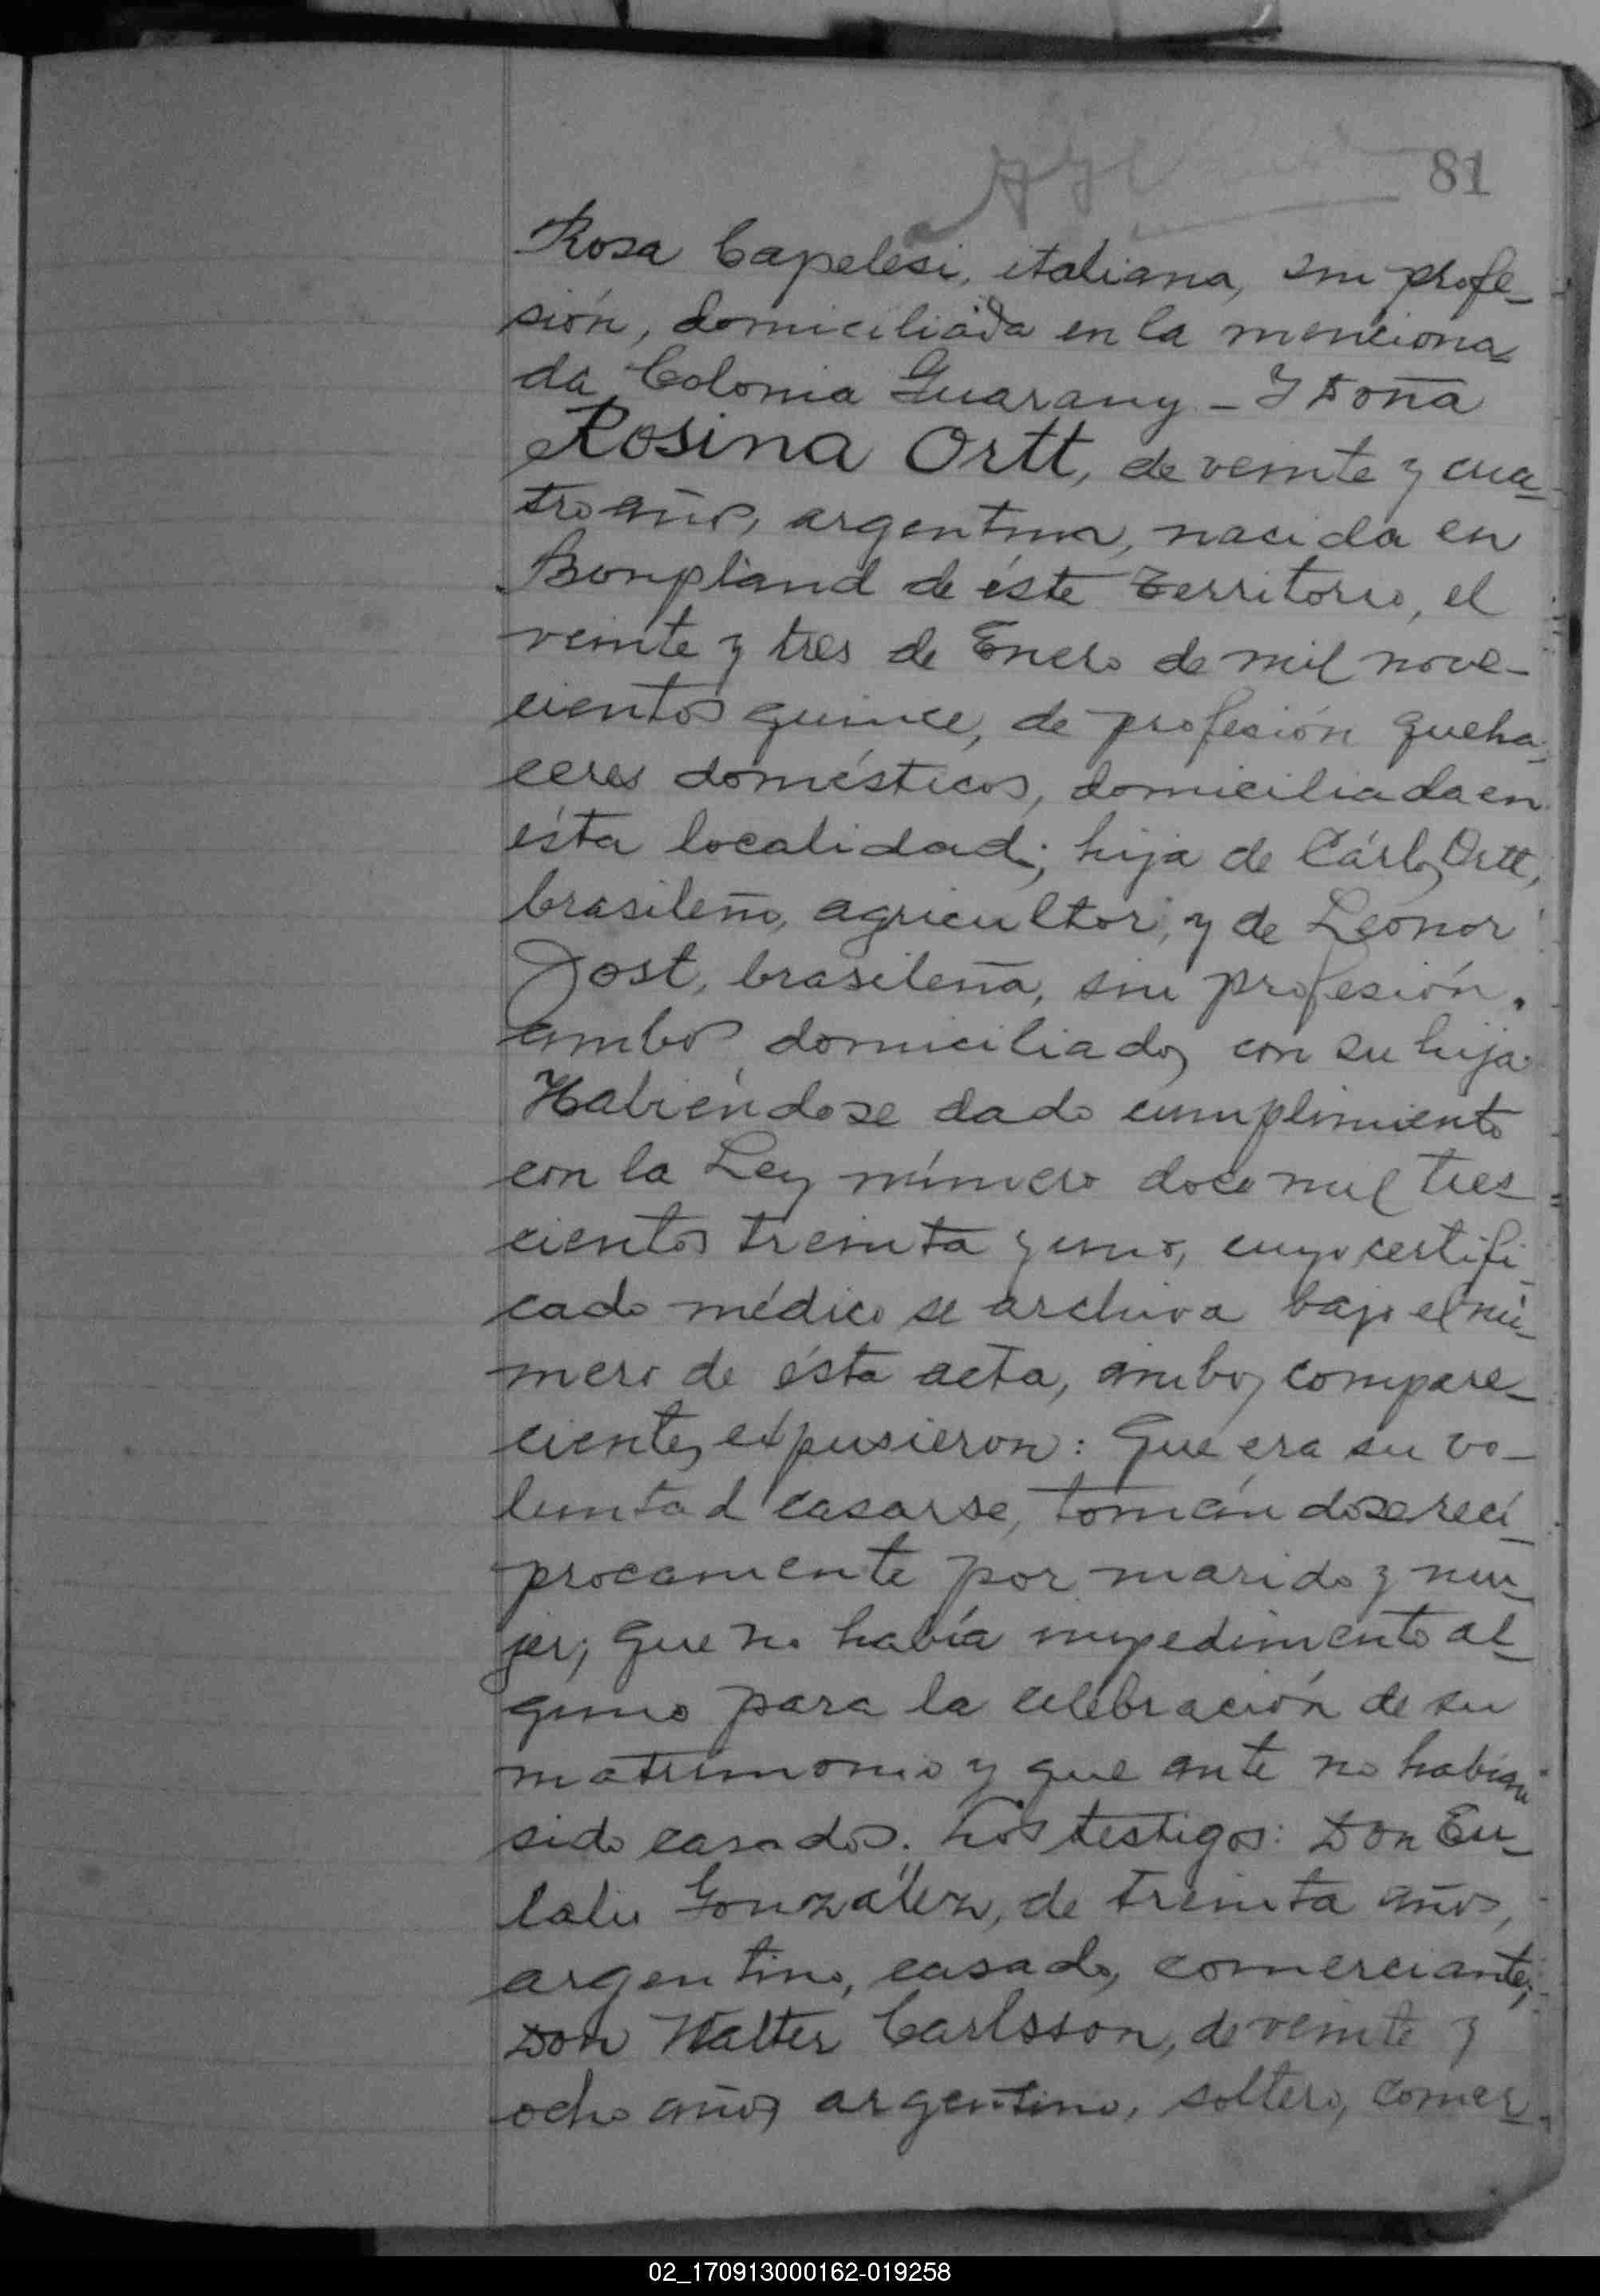 81
Rosa Capelesi, italiana, sin profe-
sión, domiciliada en la menciona-
da Colonia Guarany - Y Doña
Rosina Ortt, de veinte y cua-
tro años, argentina, nacida en
Bonpland de éste Territorio, el
veinte y tres de Enero de mil nove-
cientos quince, de profesión queha-
ceres domésticos, domiciliada en
ésta localidad; hija de Cárlos Ortt,
brasileño, agricultor, y de Leonor
Jost, brasileña, sin profesión,
ambos domiciliados con su hija
Habiéndose dado cumplimiento
con la Ley número doce mil tres-
cientos treinta y uno, cuyo certifi-
cado médico se archiva bajo el nú-
mero de ésta acta, ambos compare-
cientes expusieron: Que era su vo-
luntad casarse, tomándose recí-
procamente por marido y mu-
jer; que no había impedimento al-
guno para la celebración de su
matrimonio y que ante no habian
sido casados. Los testigos: Don Eu-
lalio González, de treinta años,
argentino, casado, comerciante;
Don Walter Carlsson, de veinte y
ocho años argentino, soltero, comer-
02_170913000162-019258